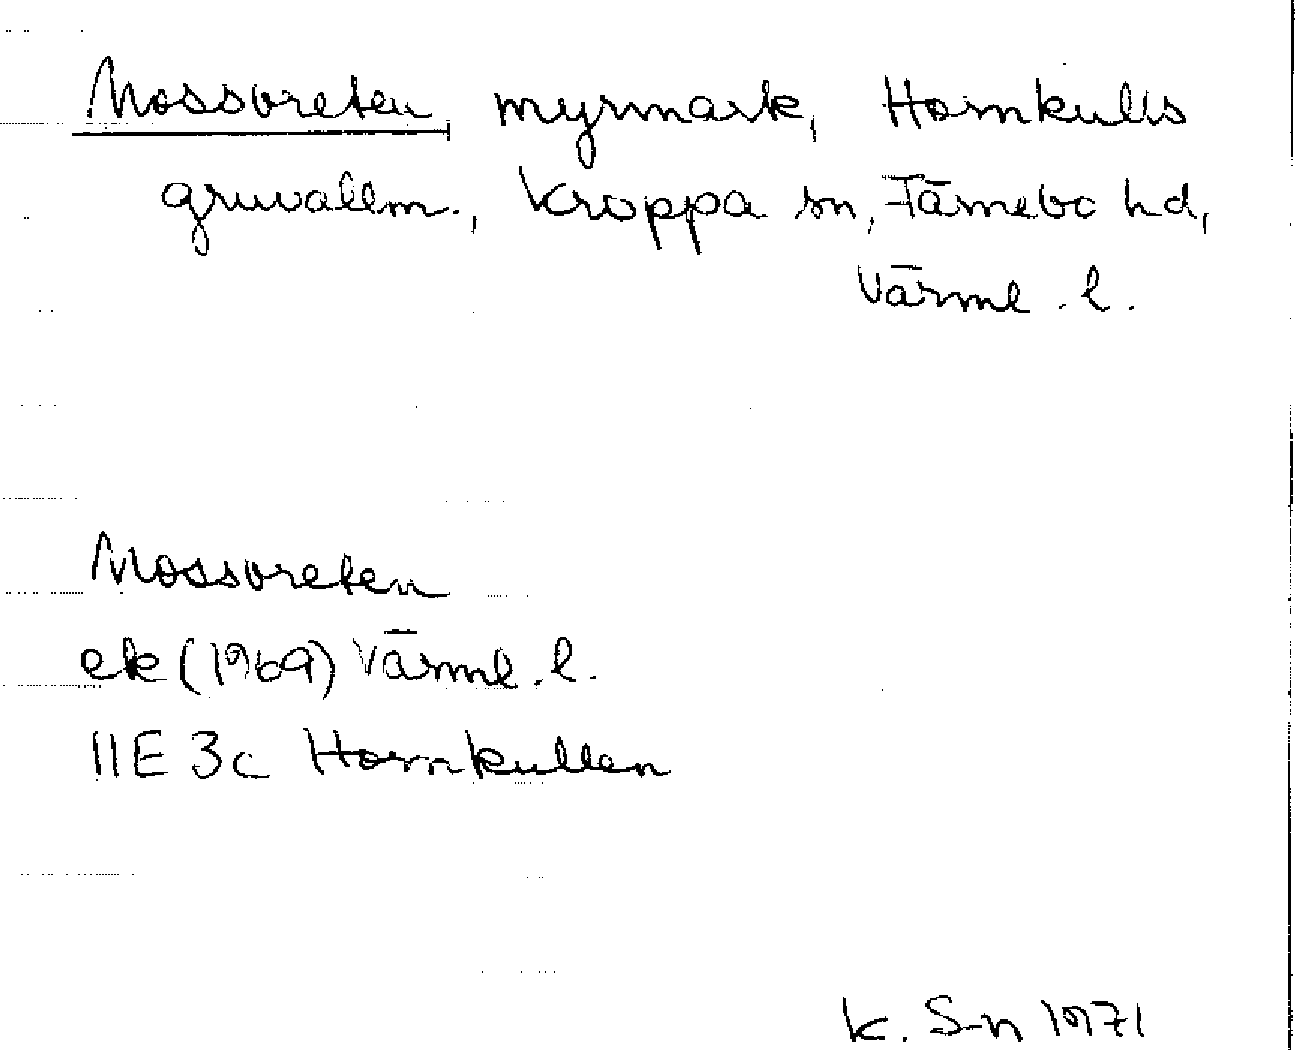 Mossvreten, myrmark, Hornkulls
gruvallm., Kroppa sn, Färnebo hd,
Värml. l.
Mossvreten
ek (1969) Värml. l.
11E 3c Hornkullen
K. S-n 1971